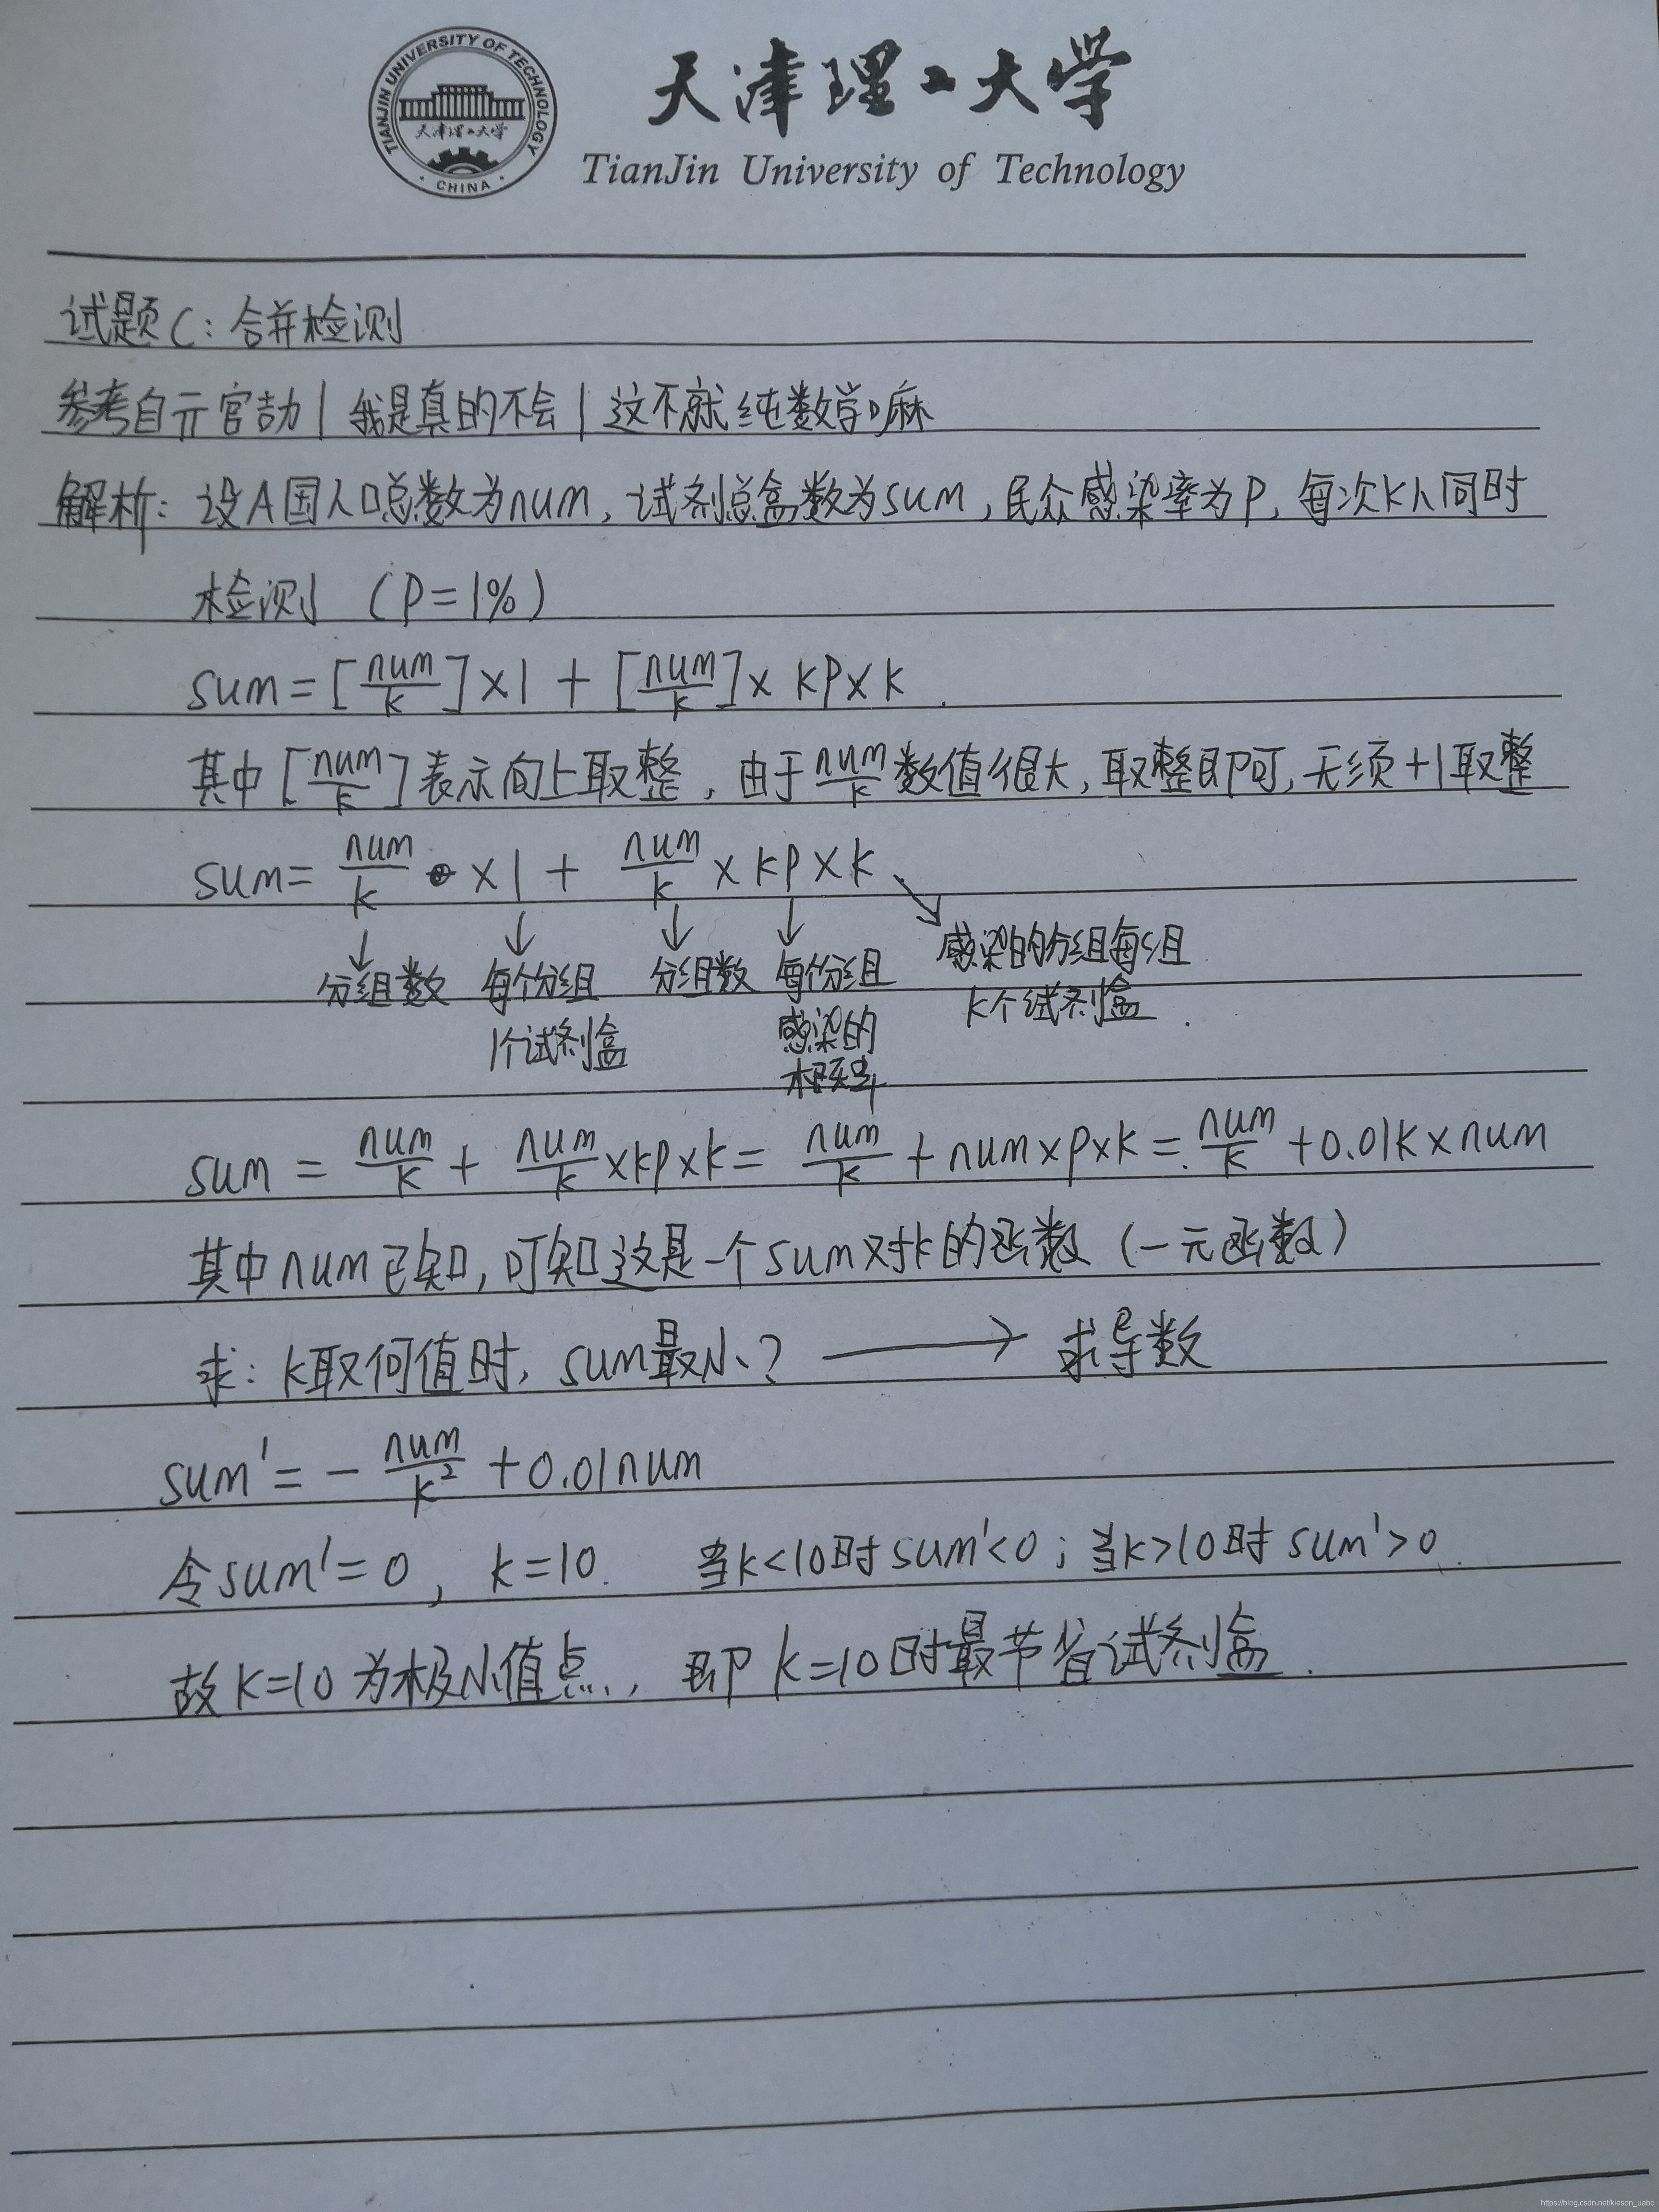 TIANJIN UNIVERSITY OF TECHNOLOGY
天津理工大学
· CHINA ·
天津理工大学
TianJin University of Technology
试题C：合并检测
参考自亓官劼 | 我是真的不会 | 这不就纯数学嘛
解析：设A国人口总数为num，试剂总盒数为sum，民众感染率为P，每次K人同时
检测 （P=1%）
sum=[num/k]×1 + [num/k]× kp×k.
其中[num/k]表示向上取整，由于num/k数值很大，取整即可，无须+1取整
sum= num/k ×1 + num/k × kp×k
分组数 每个分组 分组数 每个分组 感染的分组每组
1个试剂盒 感染的 k个试剂盒.
概率
sum = num/k + num/k×kp×k= num/k + num×p×k= num/k +0.01k×num
其中num已知，可知这是一个sum对k的函数（一元函数）
求：k取何值时，sum最小？ → 求导数
sum'= - num/k² +0.01num
令sum'=0， k=10. 当k<10时sum'<0；当k>10时sum'>0.
故K=10为极小值点，即k=10时最节省试剂盒.
https://blog.csdn.net/kieson_uabc